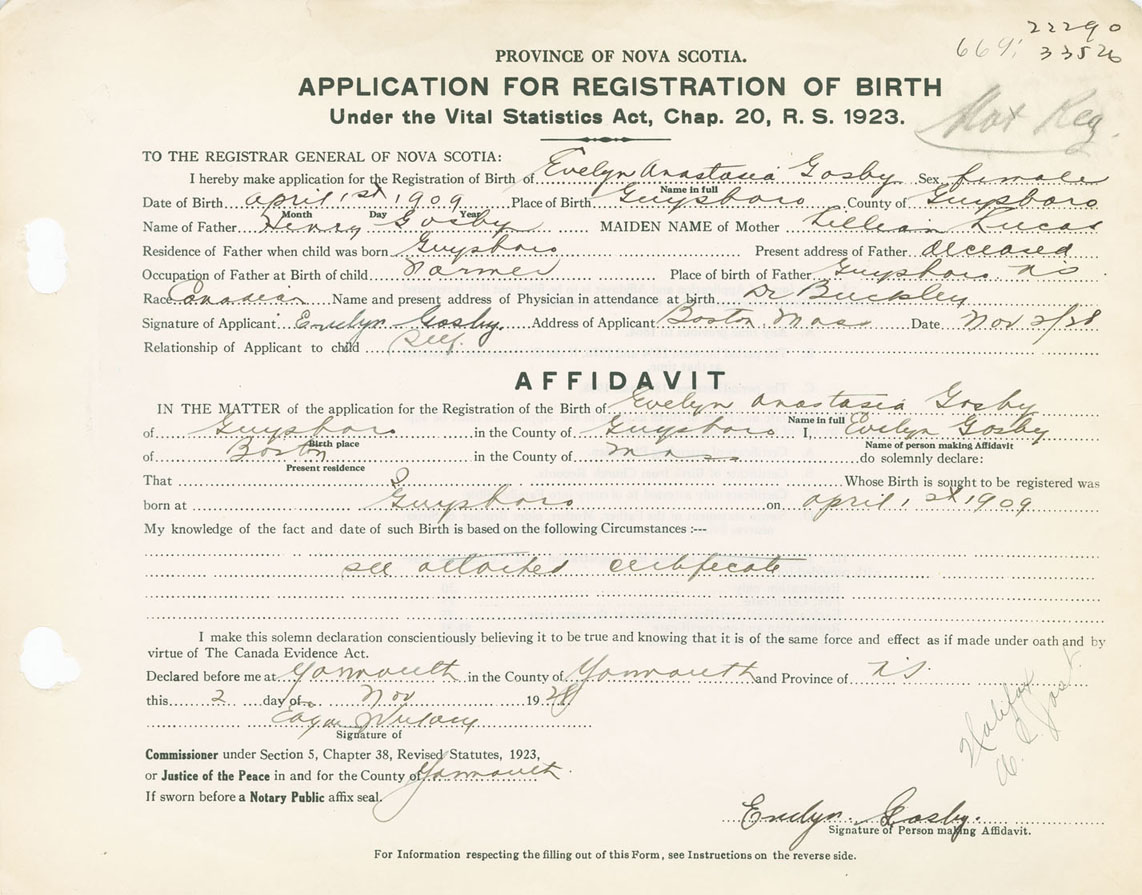 22290
6691 33526
PROVINCE OF NOVA SCOTIA.
APPLICATION FOR REGISTRATION OF BIRTH
Under the Vital Statistics Act, Chap. 20, R. S. 1923.
TO THE REGISTRAR GENERAL OF NOVA SCOTIA:
I hereby make application for the Registration of Birth of Evelyn Anastasia Gosby Sex female
Name in full
Date of Birth april 1st 1909 Place of Birth Guysboro County of Guysboro
Month Day Year
Name of Father Henry Gosby MAIDEN NAME of Mother Lillian Lucas
Residence of Father when child was born Guysboro Present address of Father deceased
Occupation of Father at Birth of child Farmer Place of birth of Father Guysboro NS
Race Canadian Name and present address of Physician in attendance at birth Dr Buckley
Signature of Applicant Evelyn Gosby Address of Applicant Boston Mass Date Nov 2/28
Relationship of Applicant to child Self
AFFIDAVIT
IN THE MATTER of the application for the Registration of the Birth of Evelyn Anastasia Gosby
Name in full
of Guysboro in the County of Guysboro I, Evelyn Gosby
Birth place Name of person making Affidavit
of Boston in the County of Mass do solemnly declare:
Present residence
That Whose Birth is sought to be registered was
born at Guysboro on april 1st 1909
My knowledge of the fact and date of such Birth is based on the following Circumstances :---
see attached certificate
I make this solemn declaration conscientiously believing it to be true and knowing that it is of the same force and effect as if made under oath and by
virtue of The Canada Evidence Act.
Declared before me at Yarmouth in the County of Yarmouth and Province of NS
this 2 day of Nov 1928
Signature of
Commissioner under Section 5, Chapter 38, Revised Statutes, 1923,
or Justice of the Peace in and for the County of Yarmouth
If sworn before a Notary Public affix seal.
Halifax
Evelyn Gosby.
Signature of Person making Affidavit.
For Information respecting the filling out of this Form, see Instructions on the reverse side.